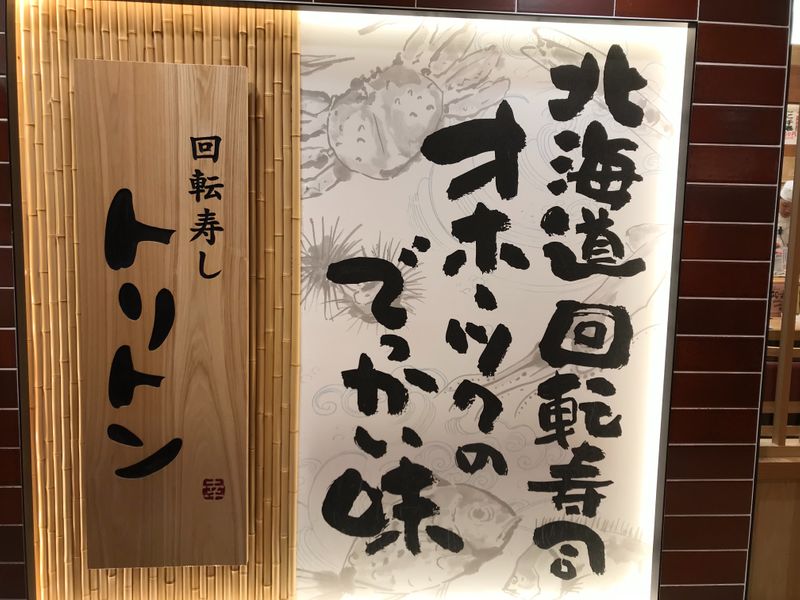 北海道 回転寿司
オホーツクの
でっかい味
回転寿し
トリトン